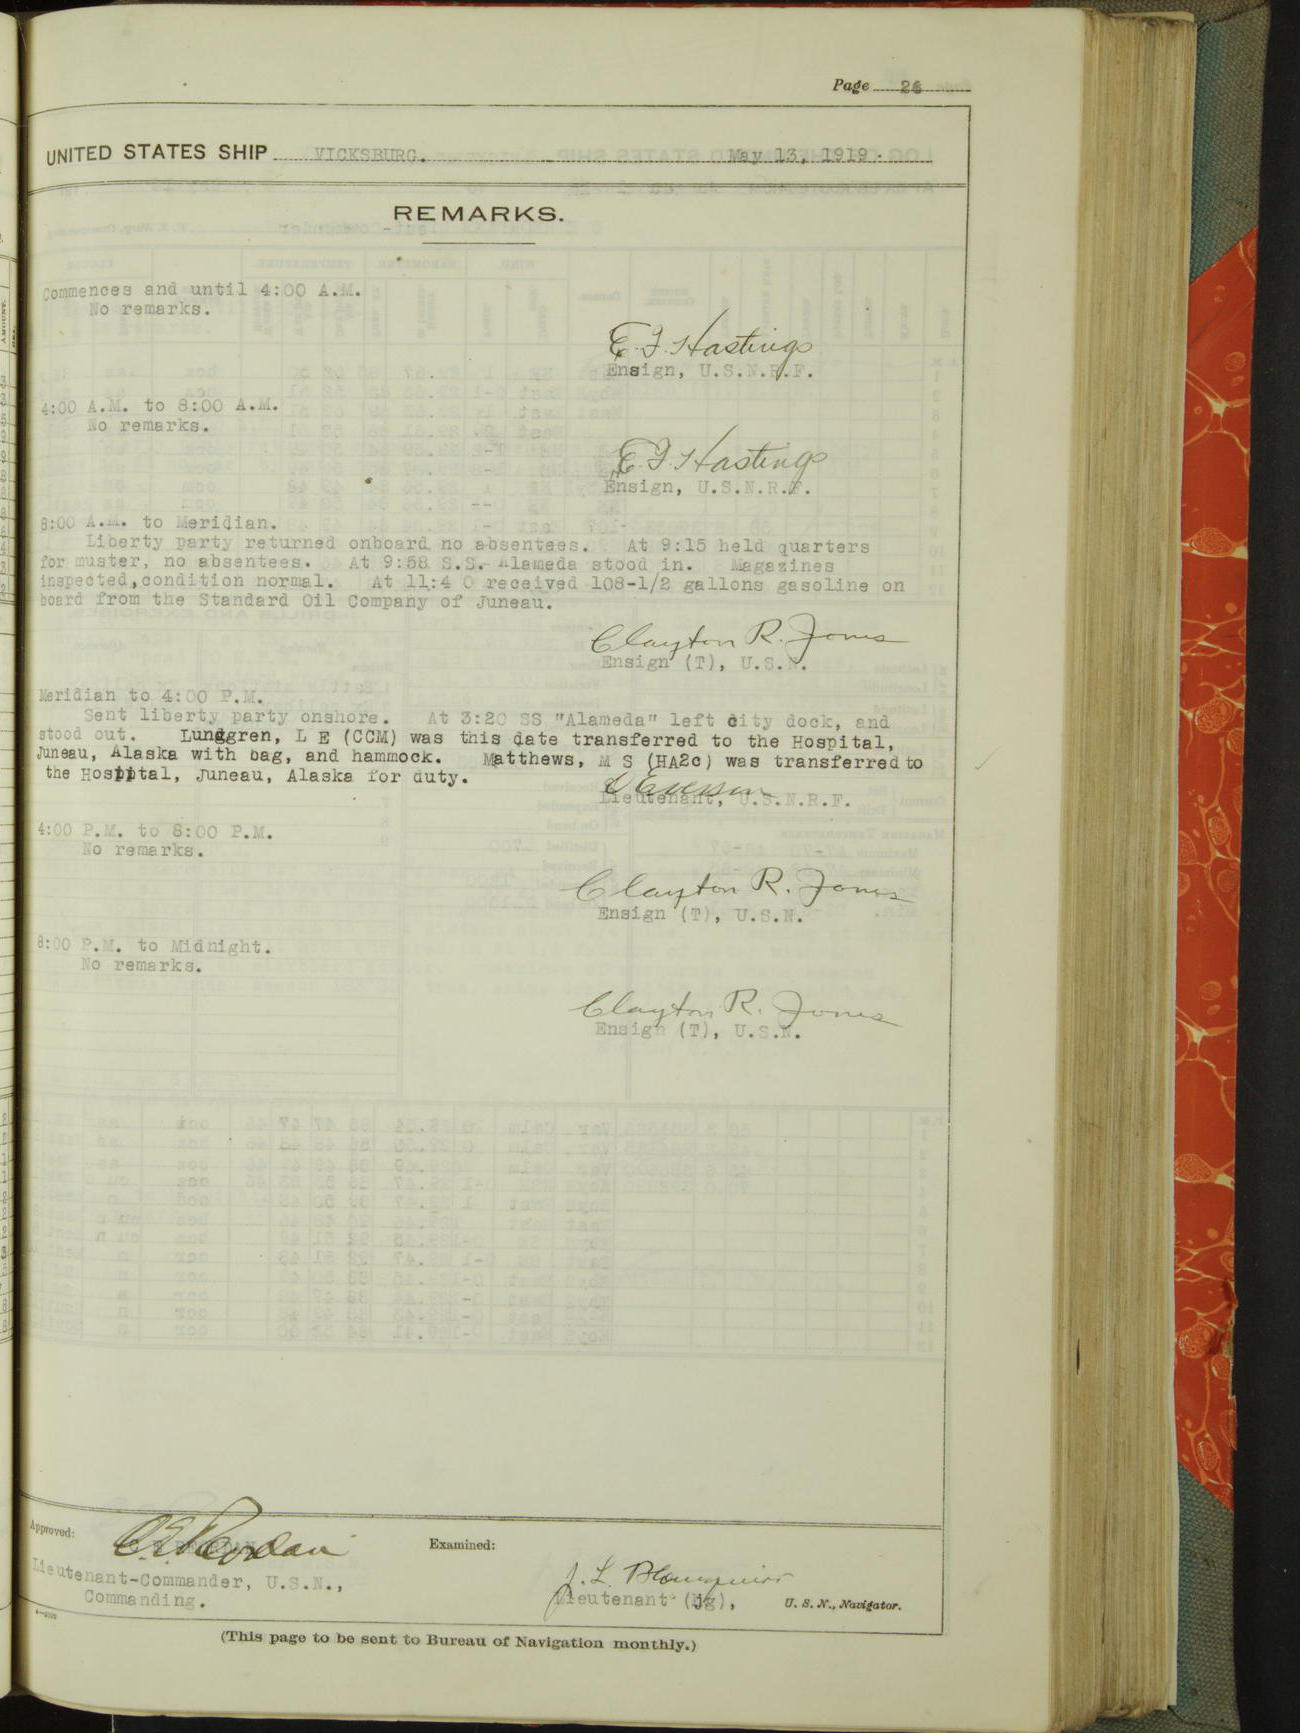 Page 26
UNITED STATES SHIP VICKSBURG. May 13, 1919.
REMARKS.
Commences and until 4:00 A.M.
No remarks.
E. F. Hastings
Ensign, U.S.N.R.F.
4:00 A.M. to 8:00 A.M.
No remarks.
E. F. Hastings
Ensign, U.S.N.R.F.
8:00 A.M. to Meridian.
Liberty party returned onboard no absentees. At 9:15 held quarters
for muster, no absentees. At 9:58 S.S. Alameda stood in. Magazines
inspected, condition normal. At 11:4 0 received 108-1/2 gallons gasoline on
board from the Standard Oil Company of Juneau.
Clayton R. Jones
Ensign (T), U.S.N.
Meridian to 4:00 P.M.
Sent liberty party onshore. At 3:20 SS "Alameda" left city dock, and
stood out. Lundgren, L E (CCM) was this date transferred to the Hospital,
Juneau, Alaska with bag, and hammock. Matthews, M S (HA2c) was transferred to
the Hospital, Juneau, Alaska for duty.
Lieutenant, U.S.N.R.F.
4:00 P.M. to 8:00 P.M.
No remarks.
Clayton R. Jones
Ensign (T), U.S.N.
8:00 P.M. to Midnight.
No remarks.
Clayton R. Jones
Ensign (T), U.S.N.
Approved:
Lieutenant-Commander, U.S.N.,
Commanding.
Examined:
J. L.
Lieutenant (jg), U. S. N., Navigator.
(This page to be sent to Bureau of Navigation monthly.)